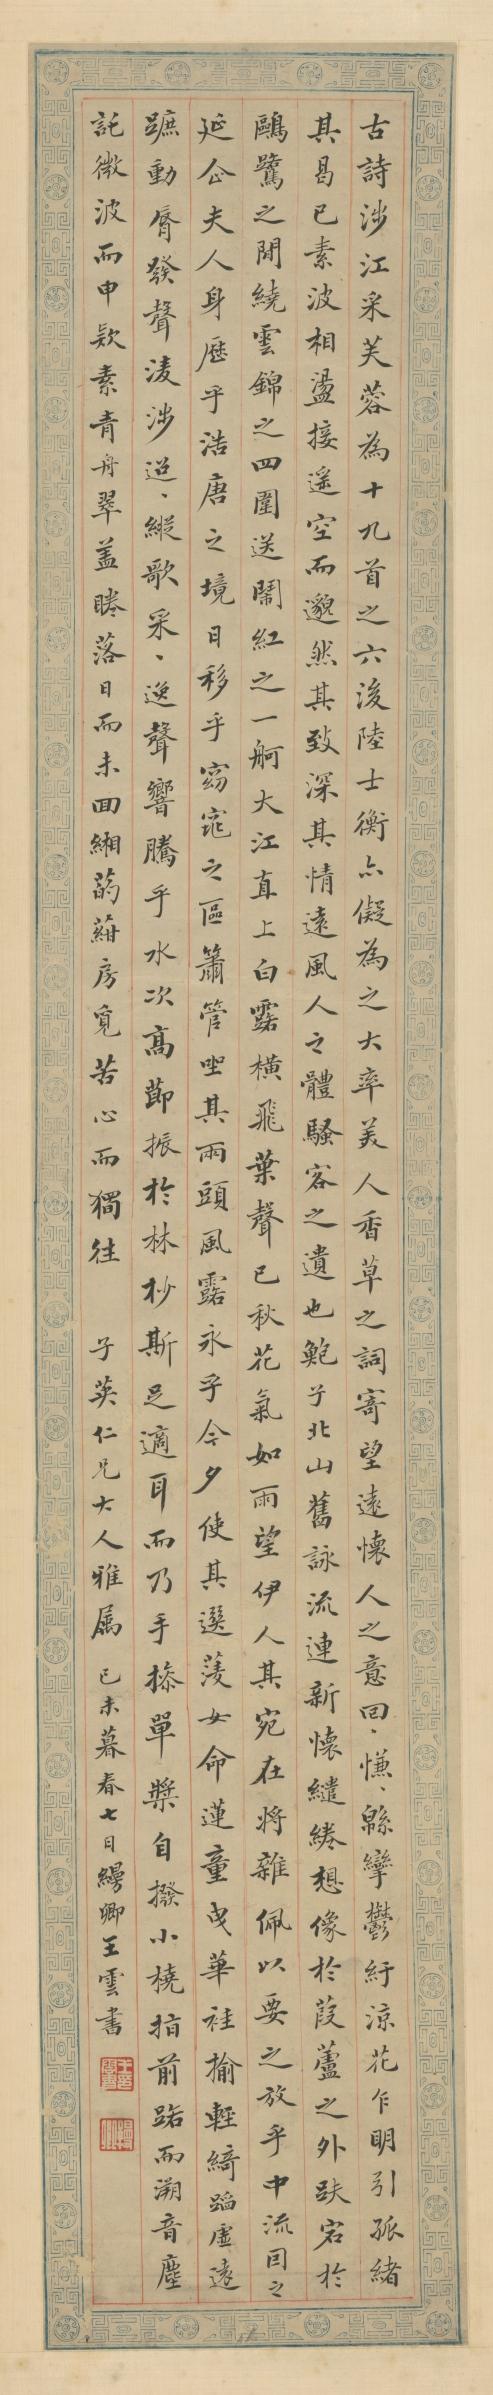 古詩涉江采芙蓉為十九首之六後陸士衡亦儗為之大率美人香草之詞寄望遠懷人之意回、慊、緜攣鬱紆涼花乍明引孤緒
其曷已素波相盪接遥空而邈然其致深其情遠風人之體騷客之遺也鮑子北山舊詠流連新懷繾綣想像於葭蘆之外趺宕於
鷗鷺之閒繞雲錦之四圍送鬧紅之一舸大江直上白露橫飛葉聲已秋花氣如雨望伊人其宛在將雜佩以要之放乎中流回之
延佇夫人身歷乎浩唐之境日移乎窈窕之區簫管坐其兩頭風露永乎今夕使其選蔆女命蓮童曳華袿揄輕綺蹈虛遠
蹠動脣發聲淩涉迢、縱歌采、逸聲響騰乎水次高節振於林杪斯足適耳而乃手搽單槳自撥小橈指前路而溯音塵
託微波而申款素青舟翠蓋睠落日而未回緗菂紺房覓苦心而獨往 子英仁兄大人雅属 己未暮春七日縵卿王雲書